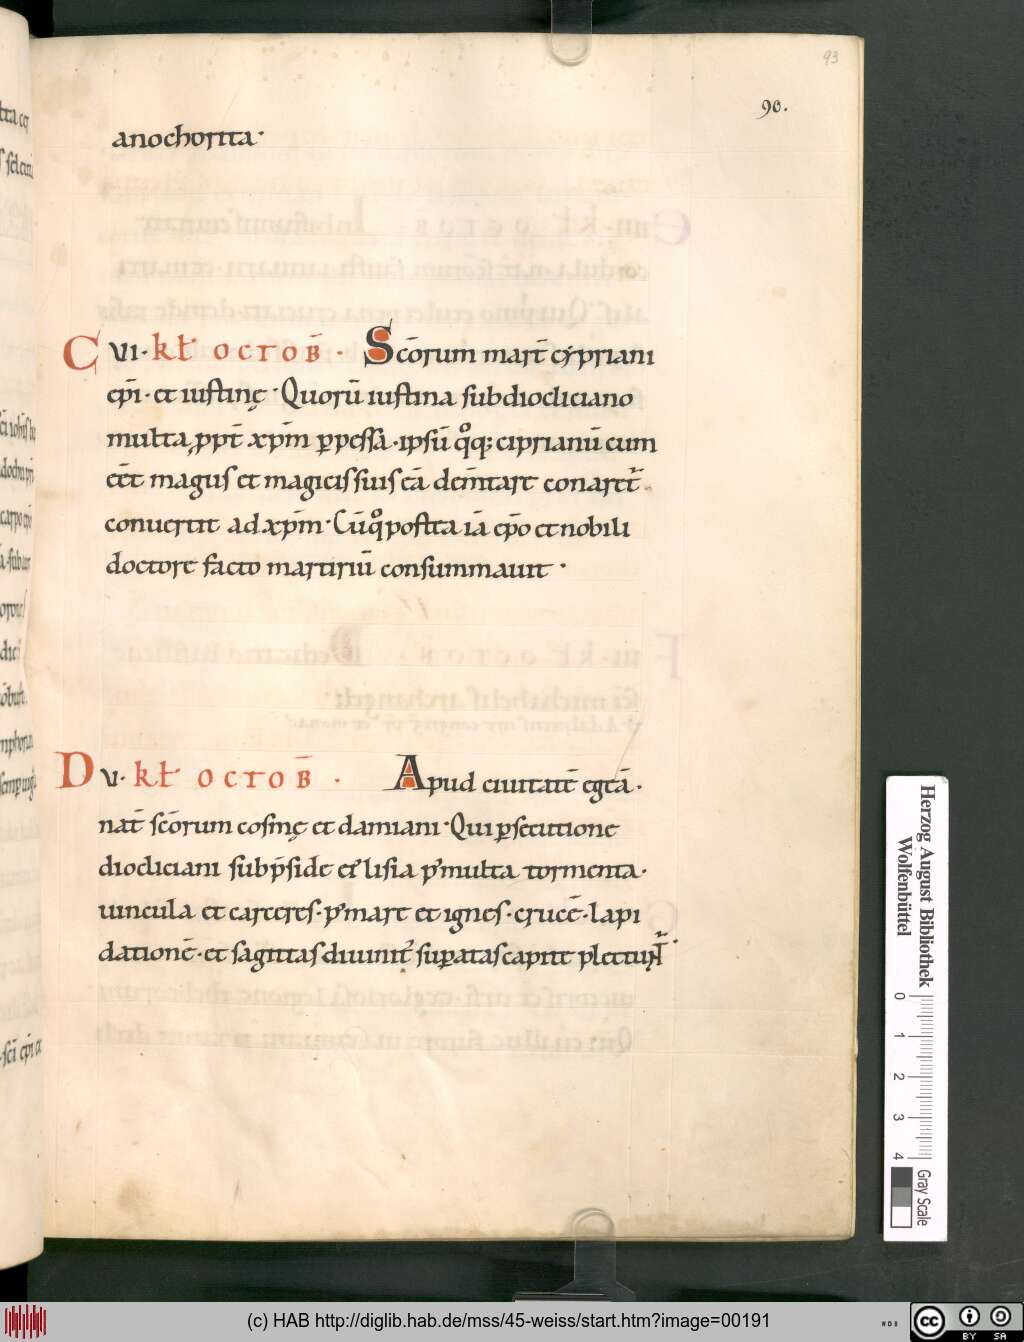 93
90.
anochorita·
C VI· kł OCTOB̄· Sc̄orum mart̄ cypriani
ep̄i· et iustinę· Quorū iustina sub diocliciano
multa ꝓpt̄ xp̄m ꝑpessa· ipsū qͦq; ciprianū cum
eēt magus et magicis suis eā dem̄tare conaret᷑
conuertit ad xp̄m· Cūqͦ postea iā ep̄o et nobili
doctore facto martiriū consummauit·
D V· kł OCTOB̄· Apud ciuitat̄ egeā·
nat̄ sc̄orum cosmę et damiani· Qui ꝑsecutione
diocliciani sub p̄side lisia p᷒ multa tormenta·
uincula et carceres· p᷒ mare et ignes· crucē· lapi
dationē· et sagittas diuinit᷑ suꝑatas capite plectunt᷑·
Herzog August Bibliothek
Wolfenbüttel
0 1 2 3 4
Gray Scale
(c) HAB http://diglib.hab.de/mss/45-weiss/start.htm?image=00191
WDB
cc BY SA